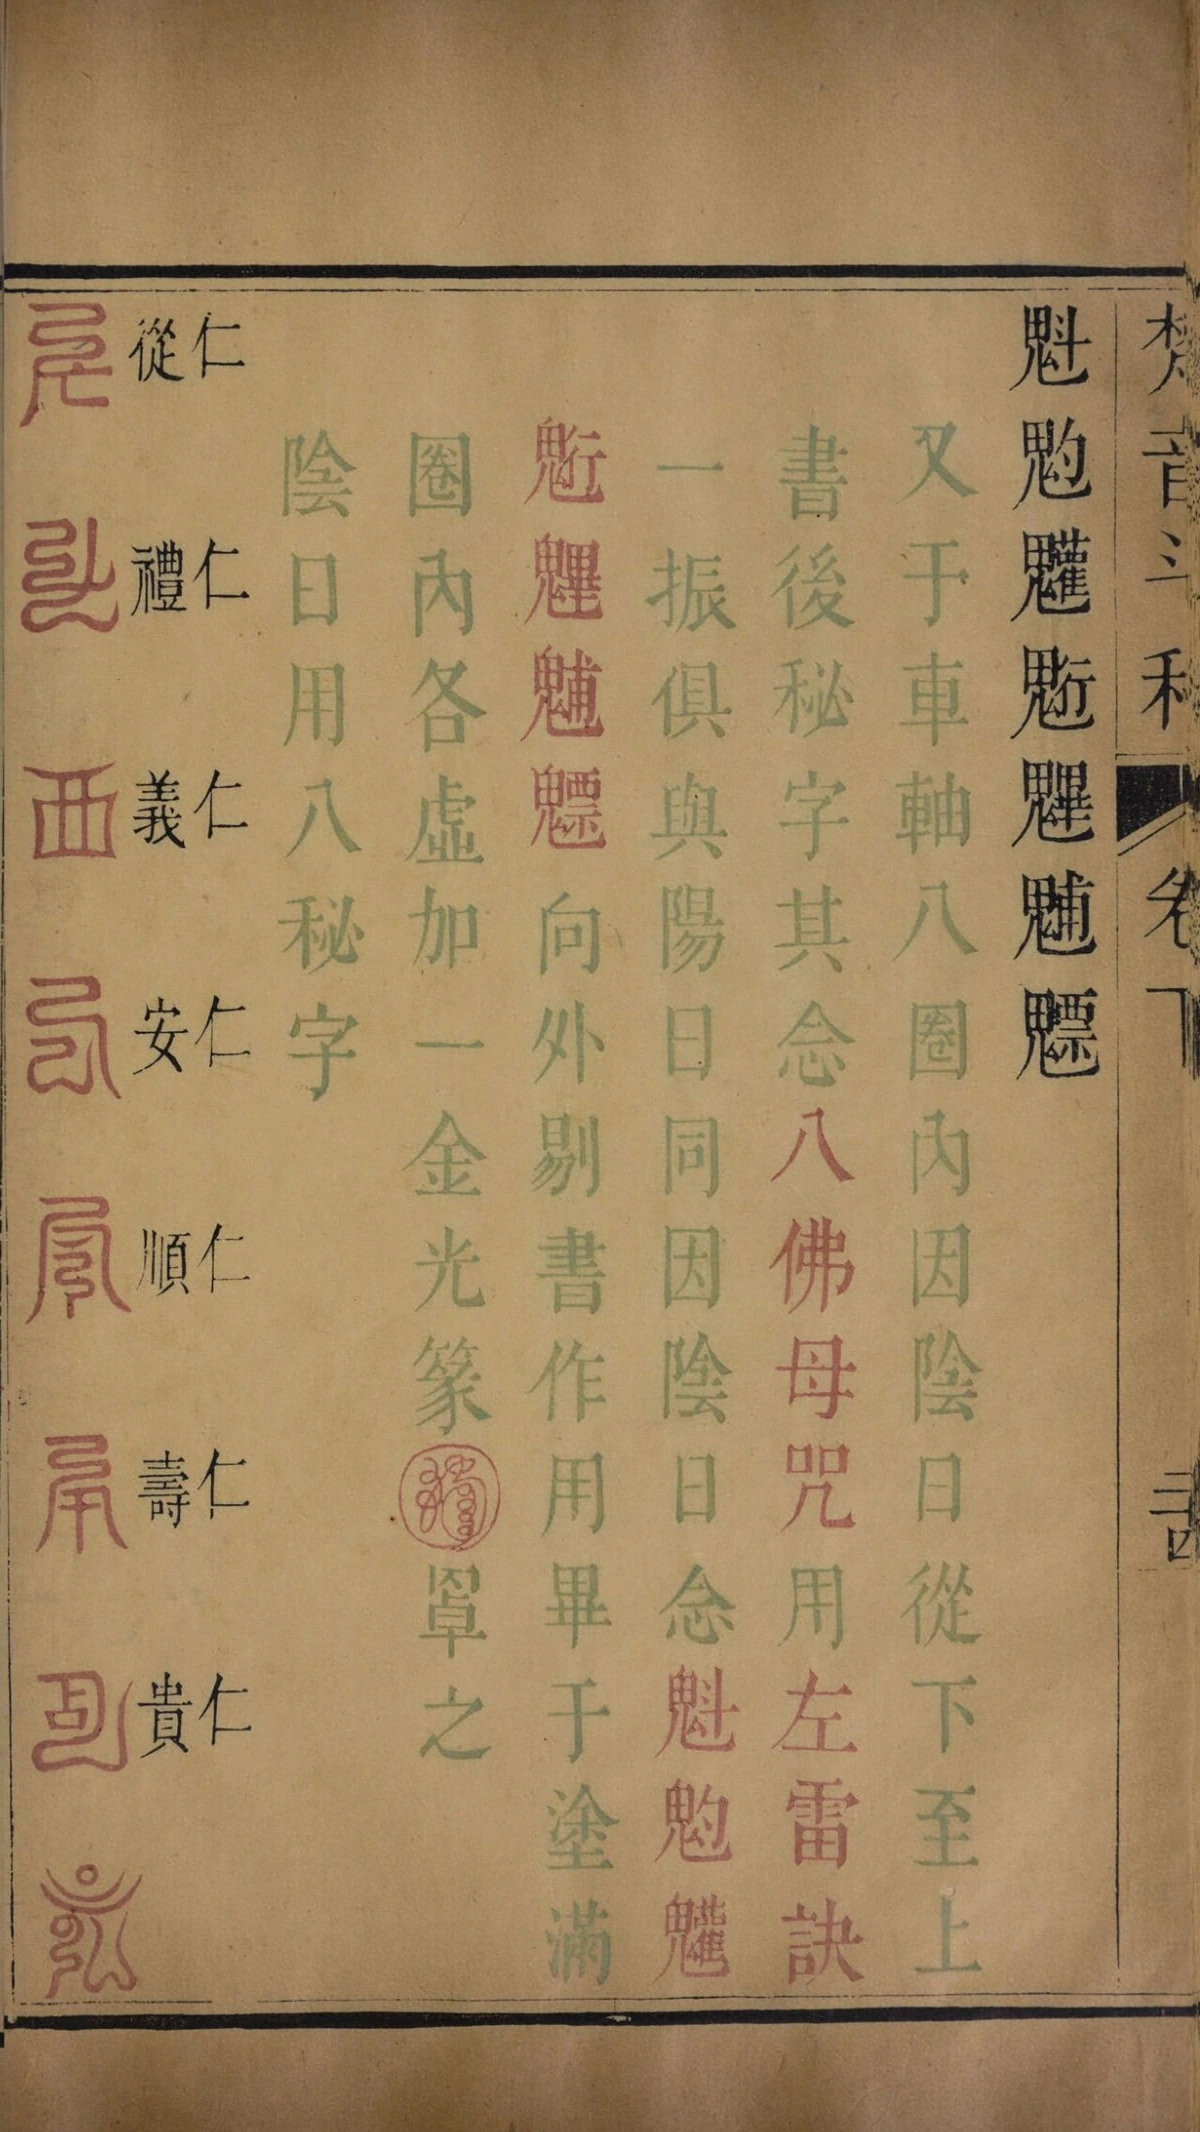 梵音斗科 卷下
魁𩲃𩵄䰢魓𩳐魒
又于車軸八圈內因陰日從下至上
書後秘字其念八佛母咒用左雷訣
一振俱與陽日同因陰日念魁𩲃𩵄
䰢魓𩳐魒向外剔書作用畢于塗滿
圈內各虛加一金光篆罩之
陰日用八秘字
仁從
仁禮
仁義
仁安
仁順
仁壽
仁貴